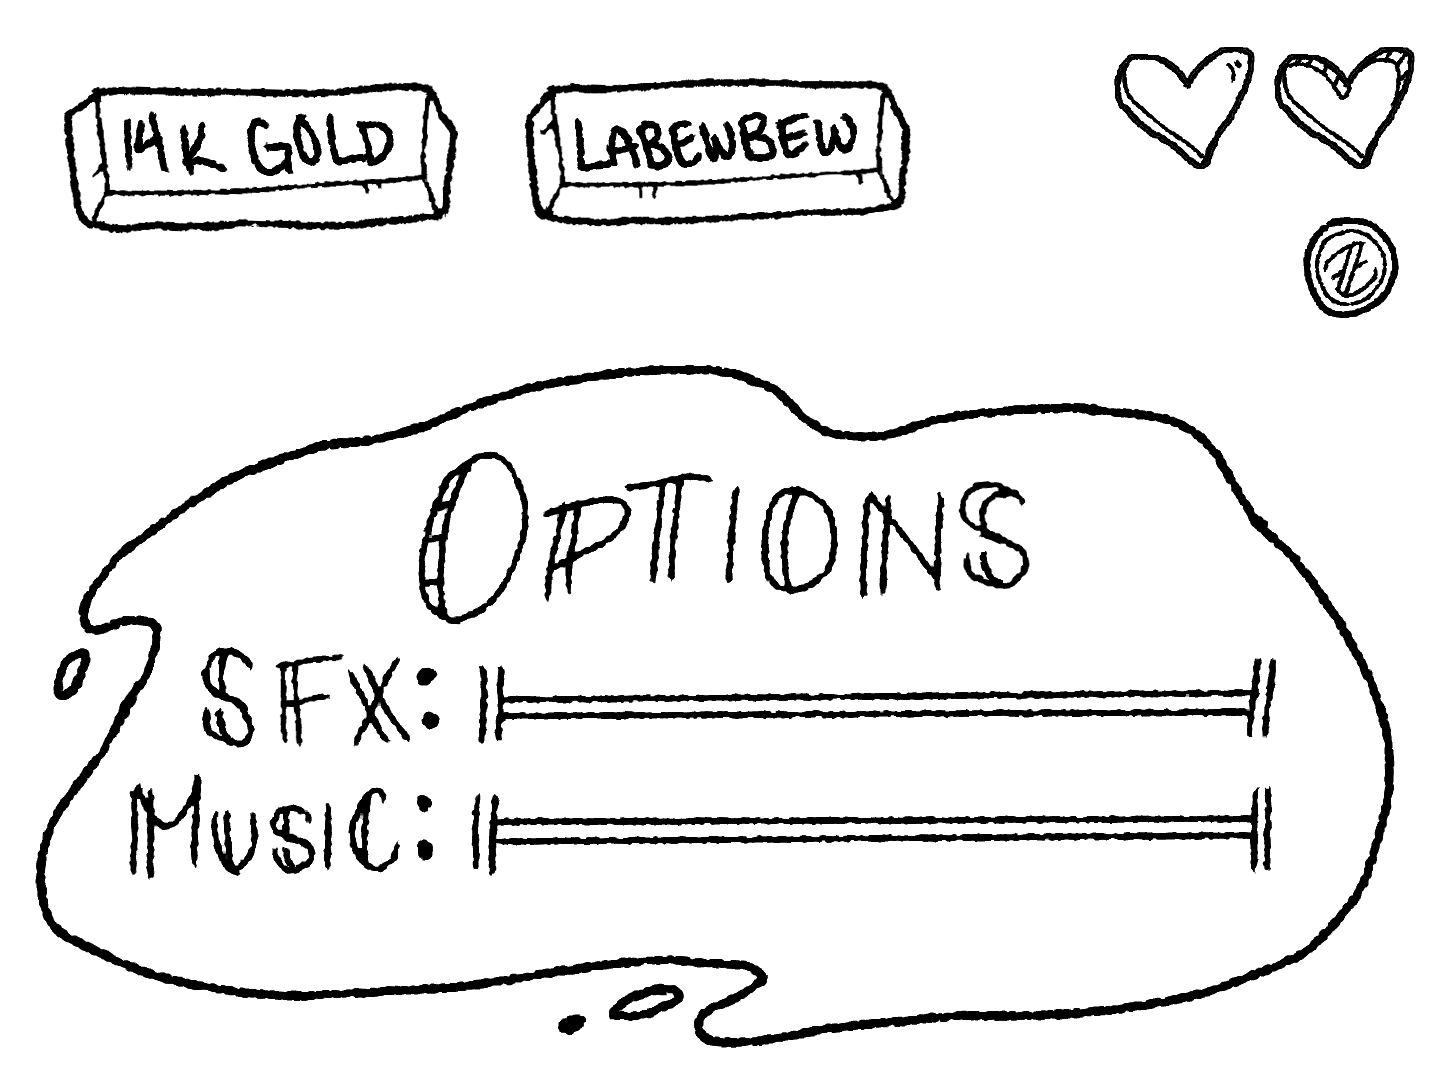 14K GOLD
LABEWBEW
OPTIONS
SFX:
MUSIC: